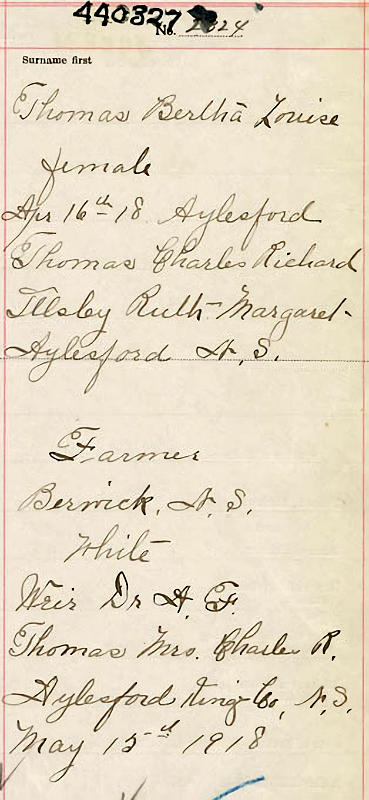 440327
No. 2324
Surname first
Thomas Bertha Louise
female
Apr 16th 18 Aylesford
Thomas Charles Richard
Illsley Ruth Margaret
Aylesford N.S.
Farmer
Berwick, N.S.
White
Weir Dr A. F.
Thomas Mrs. Charles R.
Aylesford King Co, N.S.
May 15th 1918